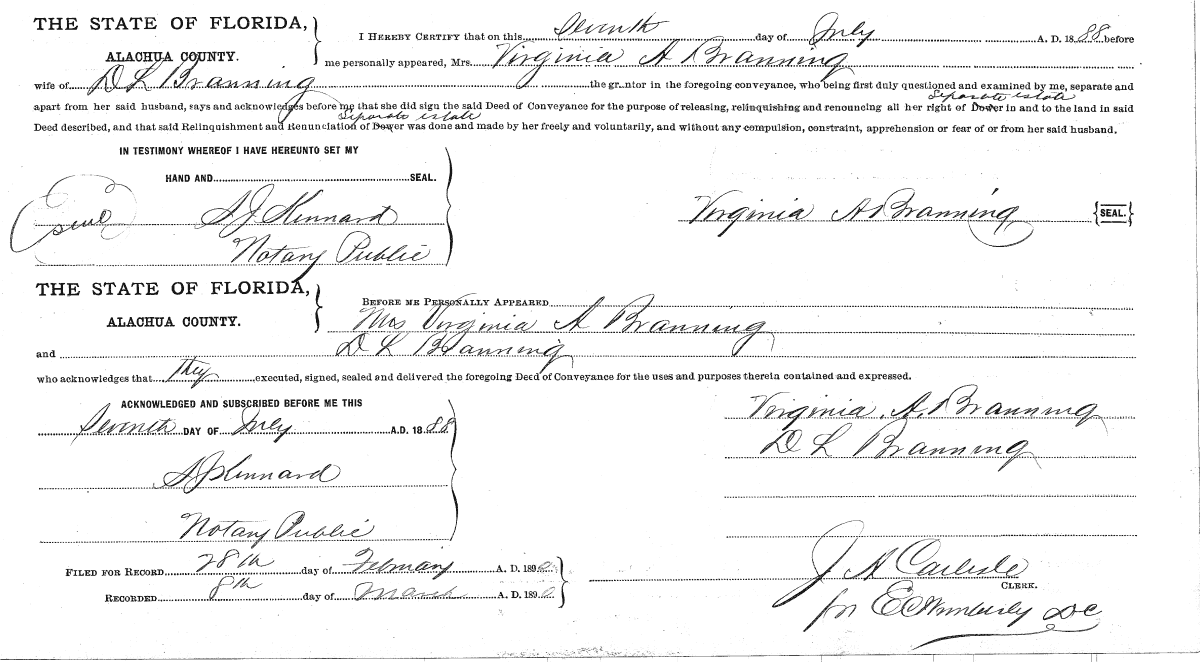 THE STATE OF FLORIDA,
ALACHUA COUNTY.
I HEREBY CERTIFY that on this Seventh day of July A. D. 18 88 before
me personally appeared, Mrs. Virginia A Branning
wife of D L Branning the gr ntor in the foregoing conveyance, who being first duly questioned and examined by me, separate and
Separate estate
apart from her said husband, says and acknowledges before me that she did sign the said Deed of Conveyance for the purpose of releasing, relinquishing and renouncing all her right of Dower in and to the land in said
Separate estate
Deed described, and that said Relinquishment and Renunciation of Dower was done and made by her freely and voluntarily, and without any compulsion, constraint, apprehension or fear of or from her said husband.
IN TESTIMONY WHEREOF I HAVE HEREUNTO SET MY
HAND AND SEAL.
Seal
S J Kennard
Notary Public
Virginia A Branning {SEAL.}
THE STATE OF FLORIDA,
ALACHUA COUNTY.
BEFORE ME PERSONALLY APPEARED
Mrs Virginia A Branning
and D L Branning
who acknowledges that they executed, signed, sealed and delivered the foregoing Deed of Conveyance for the uses and purposes therein contained and expressed.
ACKNOWLEDGED AND SUBSCRIBED BEFORE ME THIS
Seventh DAY OF July A.D. 18 88
S J Kennard
Notary Public
Virginia A. Branning
D L Branning
FILED FOR RECORD 28th day of February A. D. 189
RECORDED 8th day of March A. D. 189
J A Carlisle
CLERK.
for E C Wimberly DC